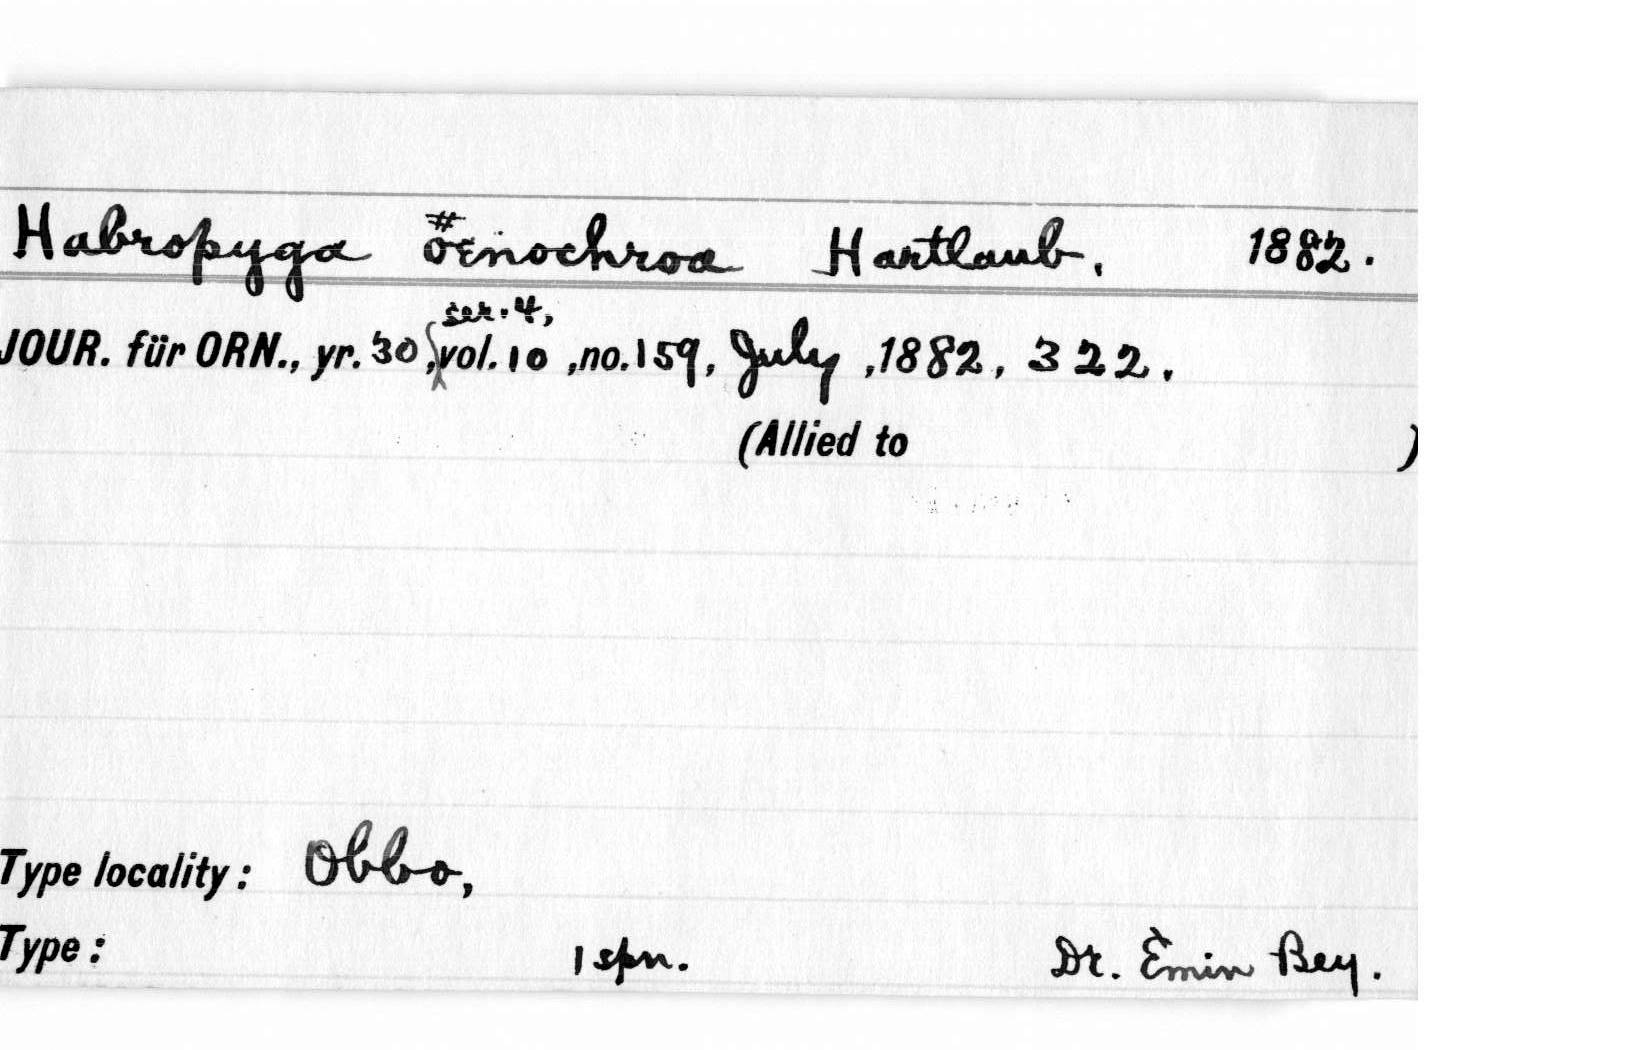 Habropyga öenochroa Hartlaub, 1882.
JOUR. für ORN., yr. 30, ser. 4, vol. 10, no. 159, July, 1882, 322.
(Allied to )
Type locality: Obbo,
Type: 1 spn. Dr. Emin Bey.